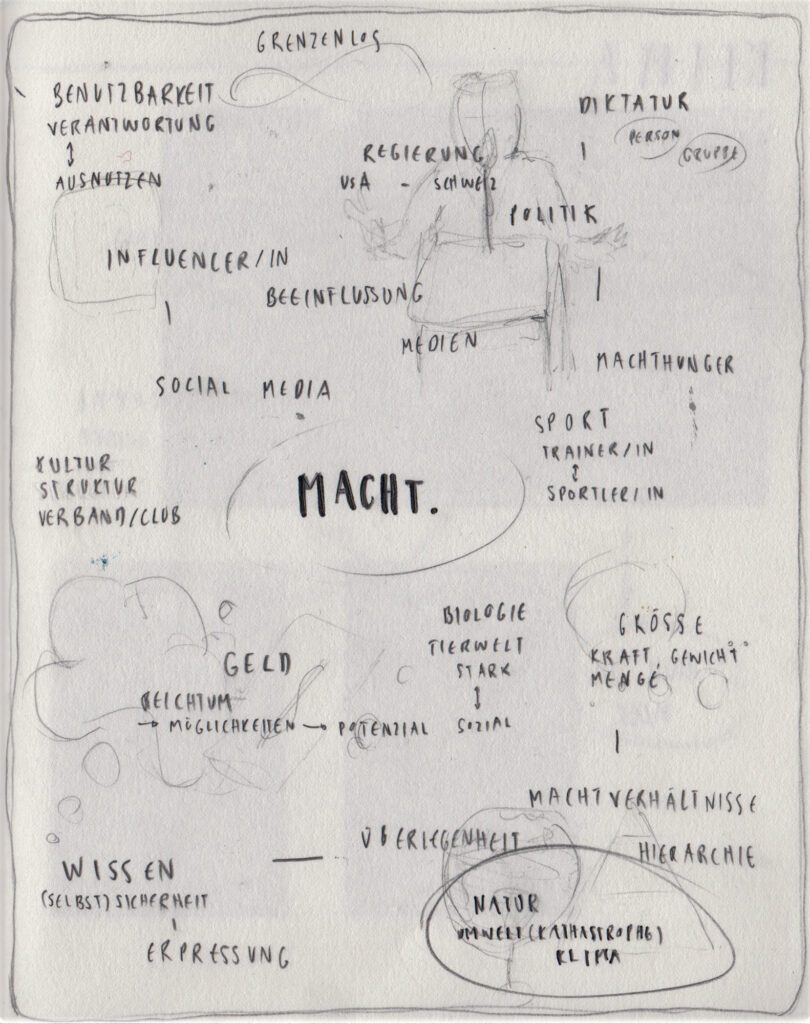 GRENZENLOS
BENUTZBARKEIT
VERANTWORTUNG
↕
AUSNUTZEN
DIKTATUR
PERSON
GRUPPE
REGIERUNG
USA - SCHWEIZ
POLITIK
INFLUENCER/IN
BEEINFLUSSUNG
MEDIEN
MACHTHUNGER
SOCIAL MEDIA
SPORT
TRAINER/IN
↕
SPORTLER/IN
KULTUR
STRUKTUR
VERBAND/CLUB
MACHT.
BIOLOGIE
TIERWELT
STARK
↕
SOZIAL
GRÖSSE
KRAFT, GEWICHT
MENGE
GELD
REICHTUM
→ MÖGLICHKEITEN → POTENZIAL
MACHTVERHÄLTNISSE
HIERARCHIE
ÜBERLEGENHEIT
WISSEN
(SELBST)SICHERHEIT
ERPRESSUNG
NATUR
UMWELT(KATHASTROPHE)
KLIMA